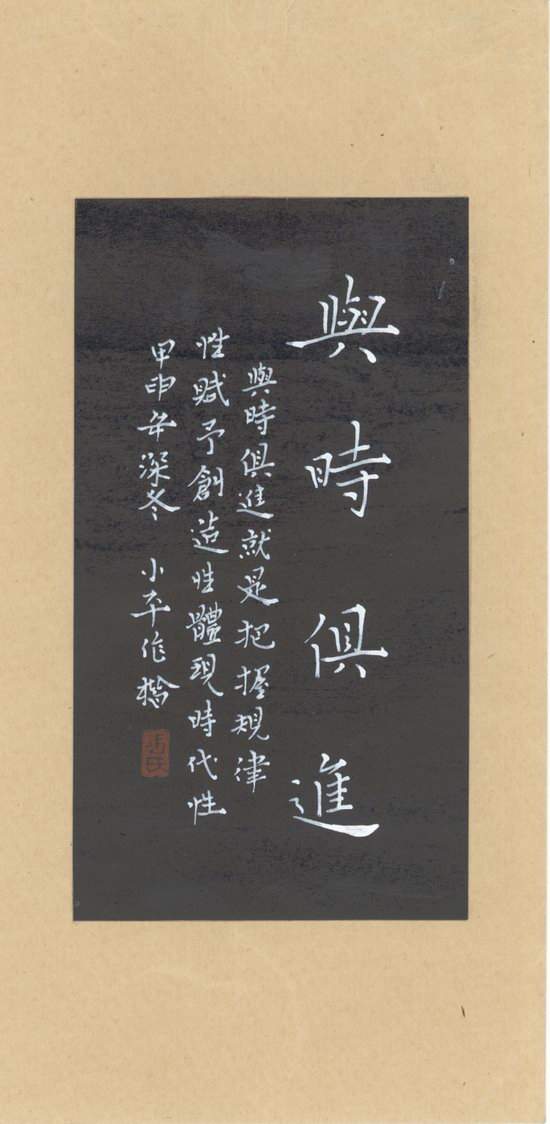 與時俱進
與時俱進就是把握規律
性賦予創造性體現時代性
甲申年深冬 小平作